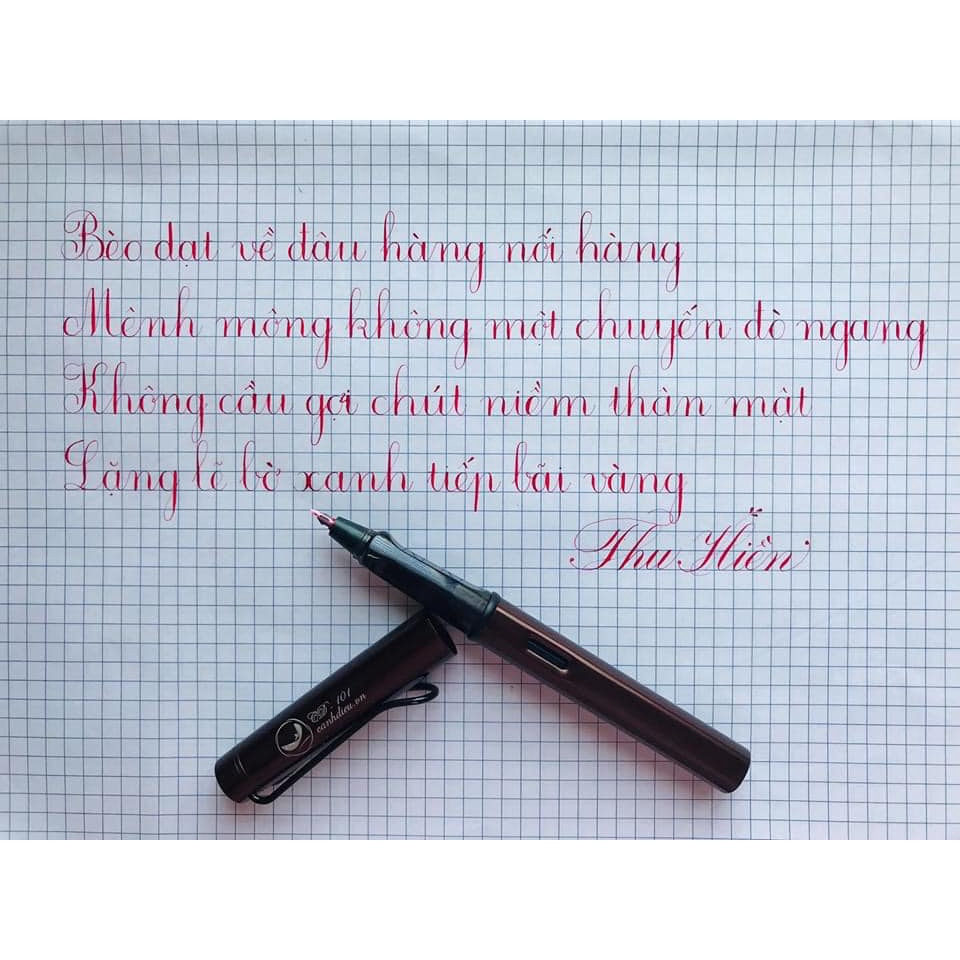 Bèo dạt về đâu hàng nối hàng
Mênh mông không một chuyến đò ngang
Không cầu gợi chút niềm thân mật
Lặng lẽ bờ xanh tiếp bãi vàng
Thu Hiền
CD: 101
canhdieu.vn